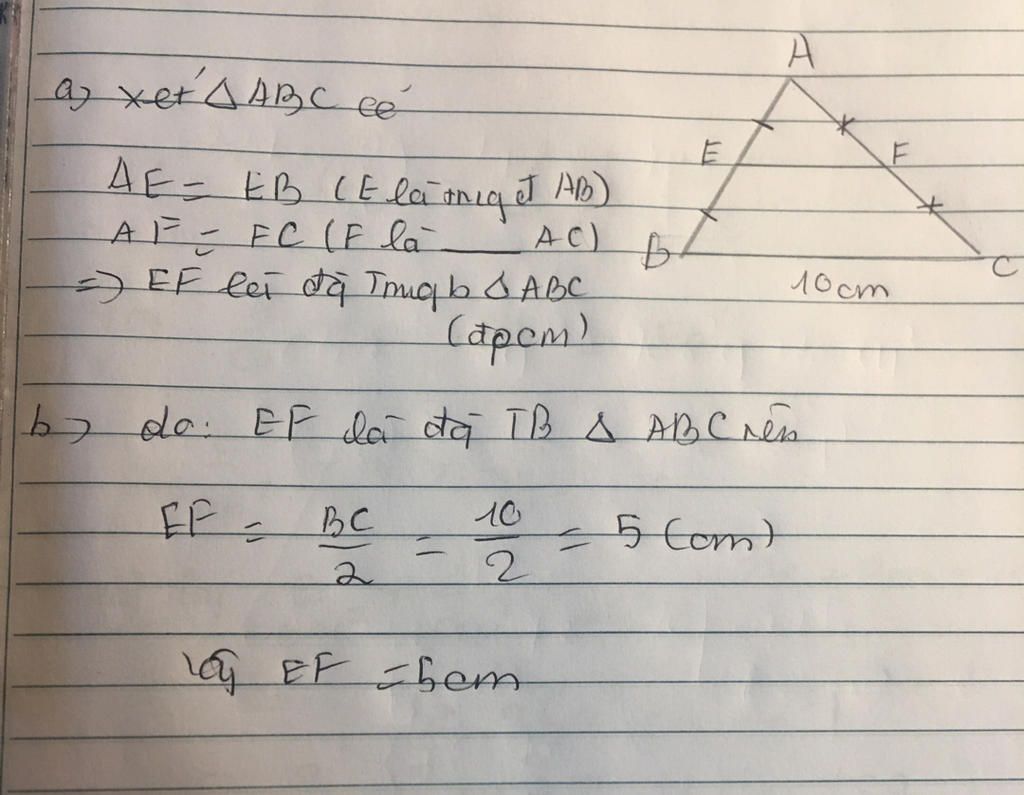 a) xét Δ ABC có
AE = EB (E là trung đ AB)
AF = FC (F là ____ AC)
=> EF là đg Trung b Δ ABC
(đpcm)
b) do: EF là đg TB Δ ABC nên
EF = BC/2 = 10/2 = 5 (cm)
Vậy EF = 5cm
A
E
F
B
C
10cm